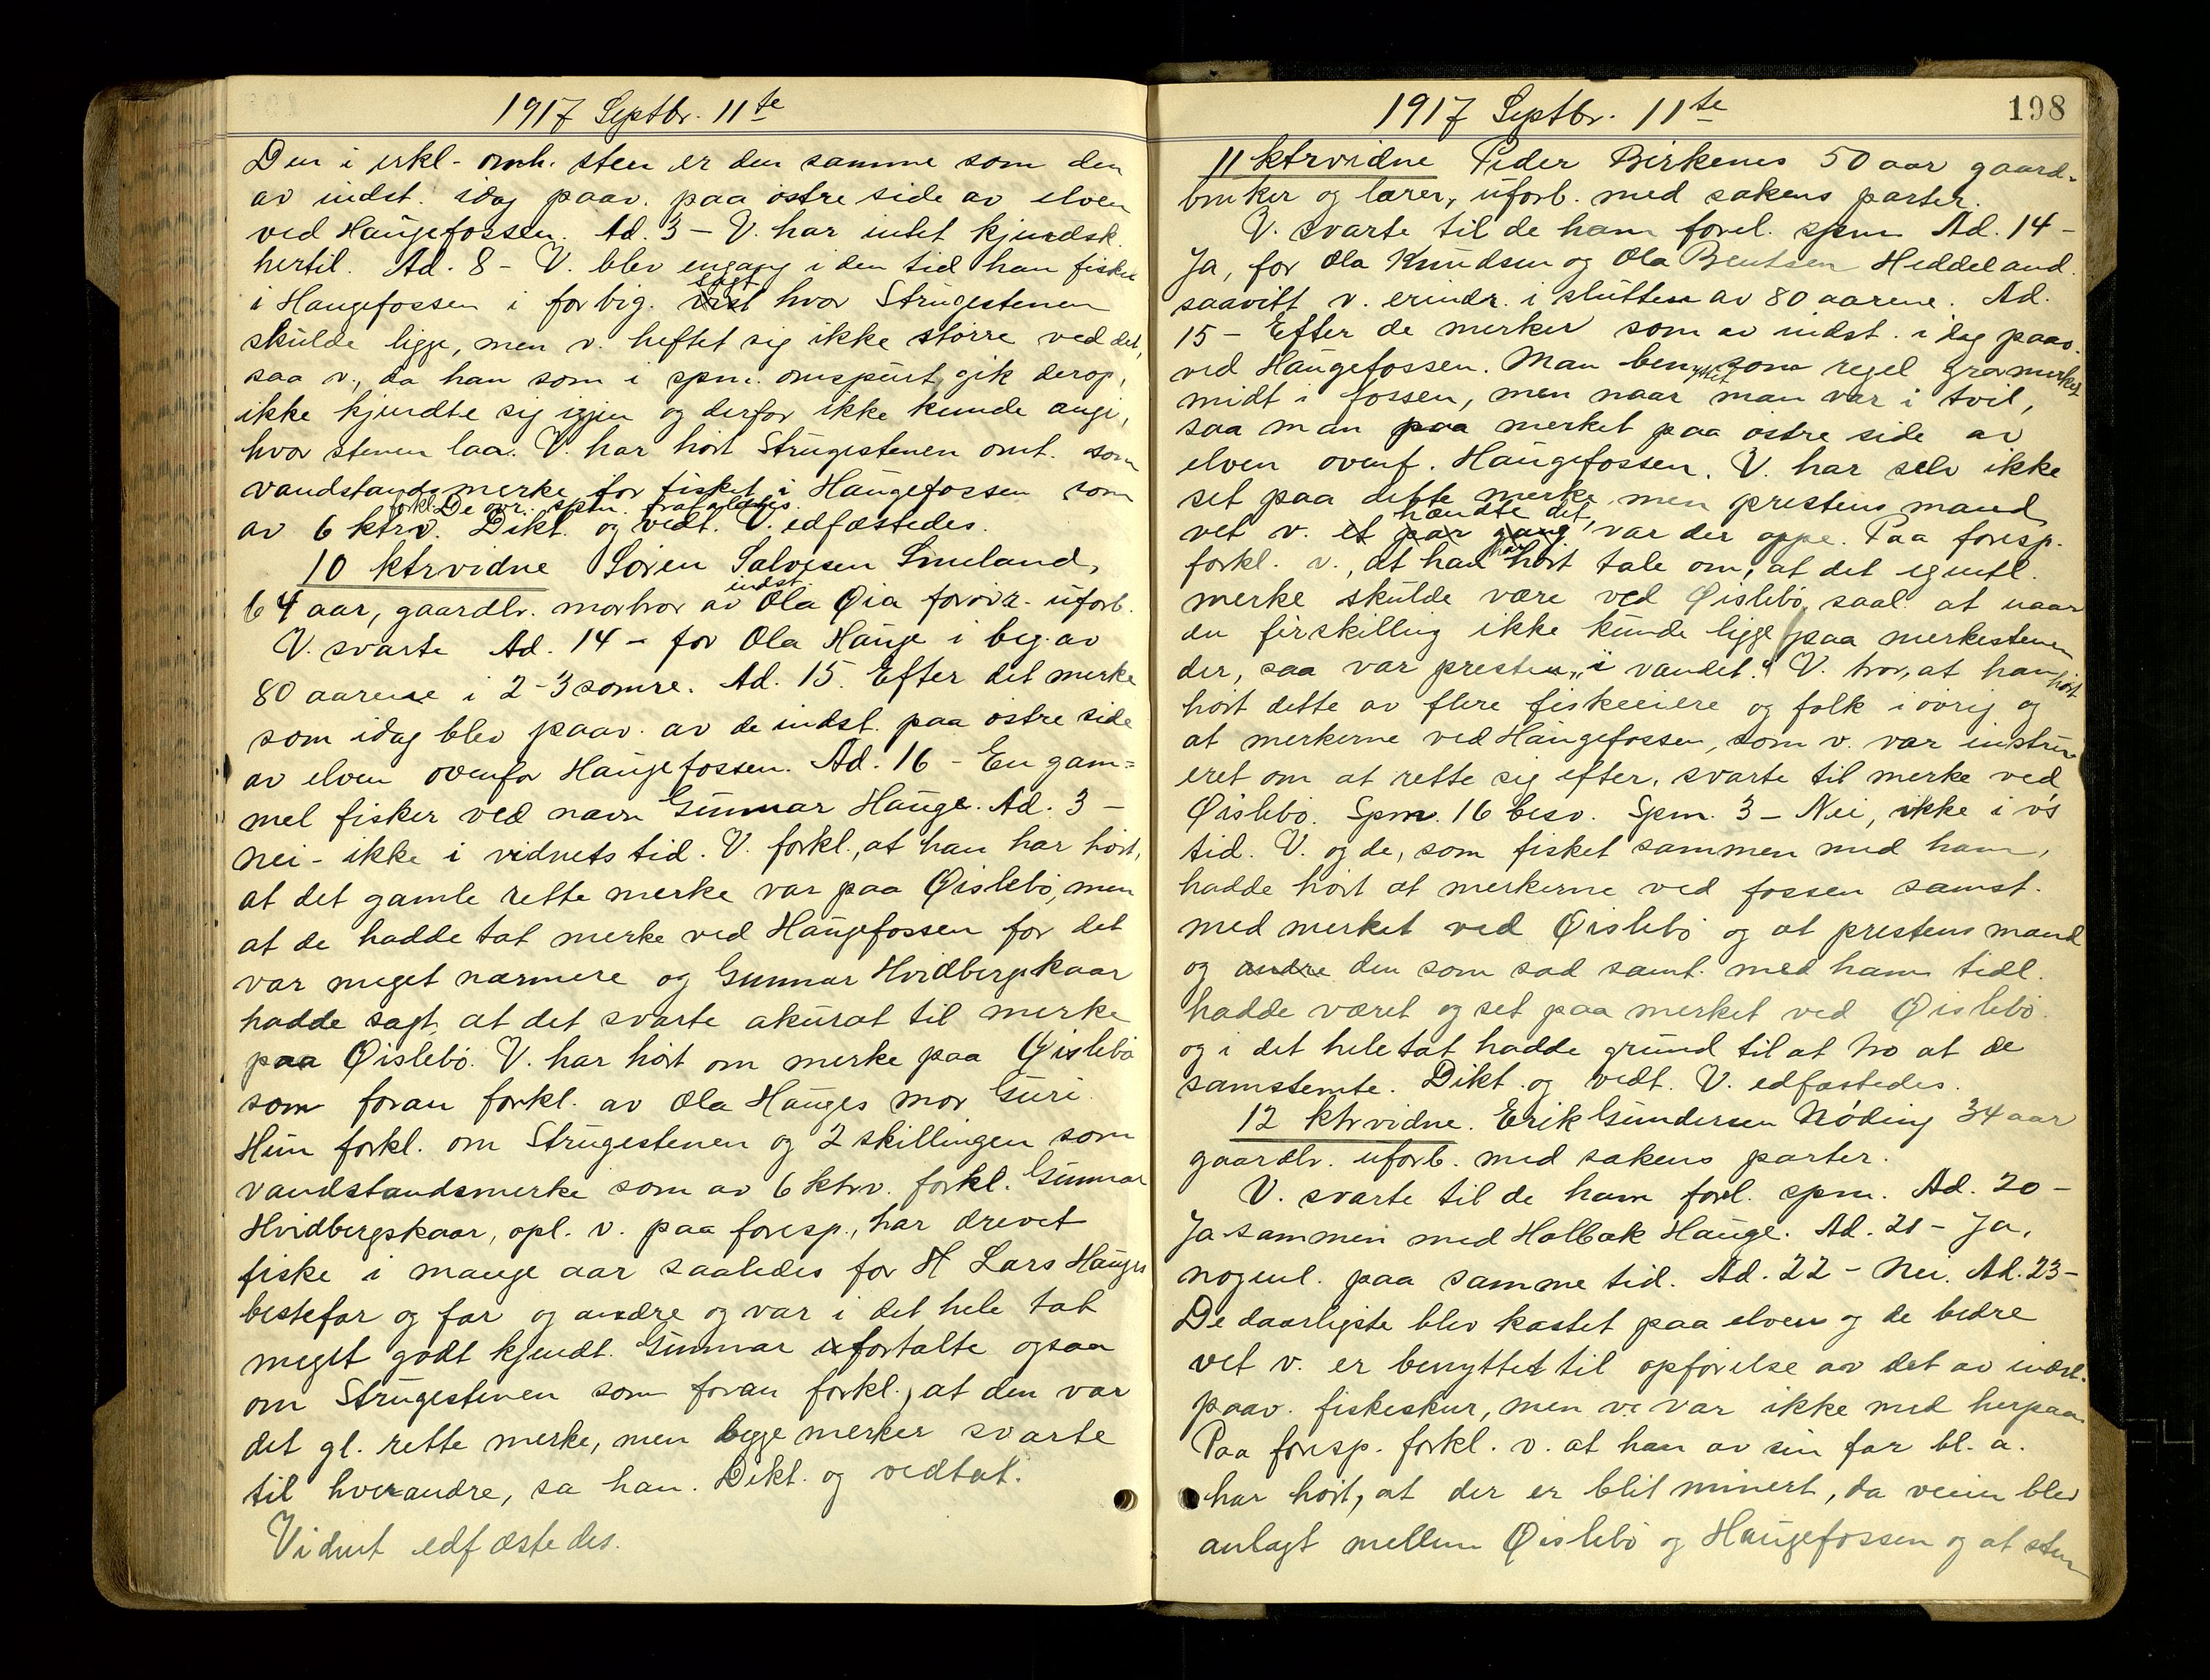 1917 Septbr. 11te
Den i erkl. omh. sten er den samme som den
av indst. idag paav. paa østre side av elven
ved Haugefossen. Ad. 3 – V. har intet kjendsk.
hertil. Ad. 8 – V. blev engang i den tid han fisket
i Haugefossen i forbig. vist sagt hvor Strugestenen
skulde ligge, men v. heftet sig ikke større ved det,
saa v., da han som i spm. omspurt, gik derop,
ikke kjendte sig igjen og derfor ikke kunde angi,
hvor stenen laa. V. har hørt Strugestenen omt. som
vandstandsmerke for fisket i Haugefossen som
forkl. De øvr. spm. frafaldtes.
av 6 ktrv. Dikt. og vedt. V. edfæstedes.
10 ktrvidne Søren Salvesen Smeland,
64 aar, gaardbr. morbror av indst. Ola Øia forøvr. uforb.
V. svarte Ad. 14 – for Ola Hauge i beg. av
80 aarene i 2-3 somre. Ad. 15. Efter det merke
som idag blev paav. av de indst. paa østre side
av elven ovenfor Haugefossen. Ad. 16 – En gam=
mel fisker ved navn Gunnar Hauge. Ad. 3 –
Nei – ikke i vidnets tid. V. forkl., at han har hørt,
at det gamle rette merke var paa Øislebø, men
at de hadde tat merke ved Haugefossen for det
var meget nærmere og Gunnar Hvidbergskaar
hadde sagt, at det svarte akurat til merke
paa Øislebø. V. har hørt om merke paa Øislebø
som foran forkl. av Ola Hauges mor Guri.
Hun forkl. om Strugestenen og 2 skillingen som
vandstandsmerke som av 6 ktrv. forkl. Gunnar
Hvidbergskaar, opl. v. paa foresp., har drevet
fiske i mange aar saaledes for H Lars Hauges
bestefar og far og andre og var i det hele tat
meget godt kjendt. Gunnar fortalte ogsaa
om Strugestenen som foran forkl., at den var
det gl. rette merke, men begge merker svarte
til hverandre, sa han. Dikt. og vedtat.
Vidnet edfæstedes.
1917 Septbr. 11te
198
11 ktrvidne Peder Birkenes 50 aar gaard-
bruker og lærer, uforb. med sakens parter.
V. svarte til de ham forel. spm. Ad. 14 –
Ja, for Ola Knudsen og Ola Bentsen Heddeland.
saavitt v. erindr. i slutten av 80 aarene. Ad.
15 – Efter de merker som av indst. i dag paav.
ved Haugefossen. Man benyttet som regel merket
midt i fossen, men naar man var i tvil,
saa man paa merket paa østre side av
elven ovenf. Haugefossen. V. har selv ikke
set paa dette merke, men prestens mand
vet v. et par gang hændte det, var der oppe. Paa foresp.
forkl. v., at han har hørt tale om, at det egentl.
merke skulde være ved Øislebø, saal. at naar
en firskilling ikke kunde ligge paa merkestenen
der, saa var presten „i vandet.“ V. tror, at han
hørt dette av flere fiskeeiere og folk i øvrig og
at merkerne ved Haugefossen, som v. var instru
eret om at rette sig efter, svarte til merke ved
Øislebø. Spm. 16 besv. Spm. 3 – Nei, ikke i v's
tid. V. og de, som fisket sammen med ham,
hadde hørt at merkerne ved fossen samst.
med merket ved Øislebø og at prestens mand
og andre den som sad samt. med ham tidl.
hadde været og set paa merket ved Øislebø.
og i det hele tat hadde grund til at tro at de
samstemte. Dikt. og vedt. V. edfæstedes.
12 ktrvidne. Erik Gundersen Nøding 34 aar
gaardbr. uforb. med sakens parter.
V. svarte til de ham forel. spm. Ad. 20 –
Ja sammen med Halbak Hauge. Ad. 21 – Ja,
nogenl. paa samme tid. Ad. 22 – Nei. Ad. 23 –
De daarligste blev kastet paa elven og de bedre
vet v. er benyttet til opførelse av det av indst.
paav. fiskeskur, men v. var ikke med herpaa.
Paa foresp. forkl. v. at han av sin far bl. a.
har hørt, at der er blit minert, da veien blev
anlagt mellem Øislebø og Haugefossen og at sten